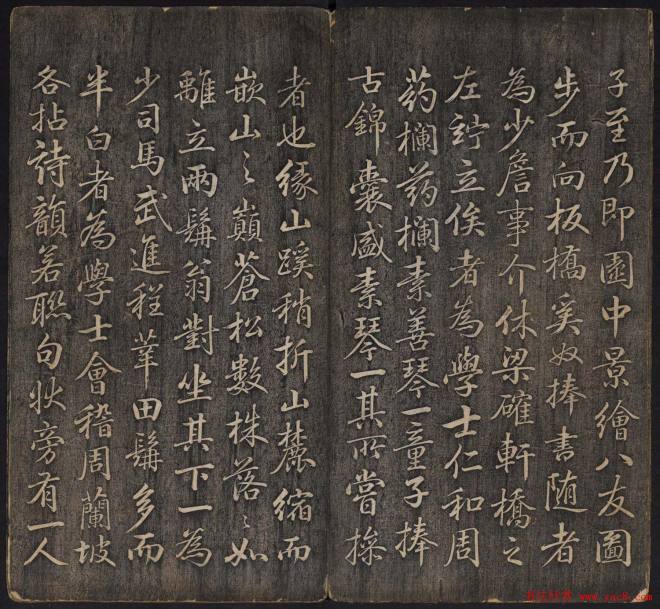 子至乃即園中景繪八友圖
步而向板橋奚奴捧書随者
為少詹事介休梁確軒橋之
左竚立俟者為學士仁和周
药欄药欄素善琴一童子捧
古錦囊盛素琴一其所甞操
者也缘山蹊稍折山麓縮而
嵌山之巔蒼松數株落〻如
離立兩鬍翁對坐其下一為
少司馬武進程莘田鬍多而
半白者為學士會稽周蘭坡
各拈詩韻若聯句狀旁有一人
书法欣赏 www.yac8.com